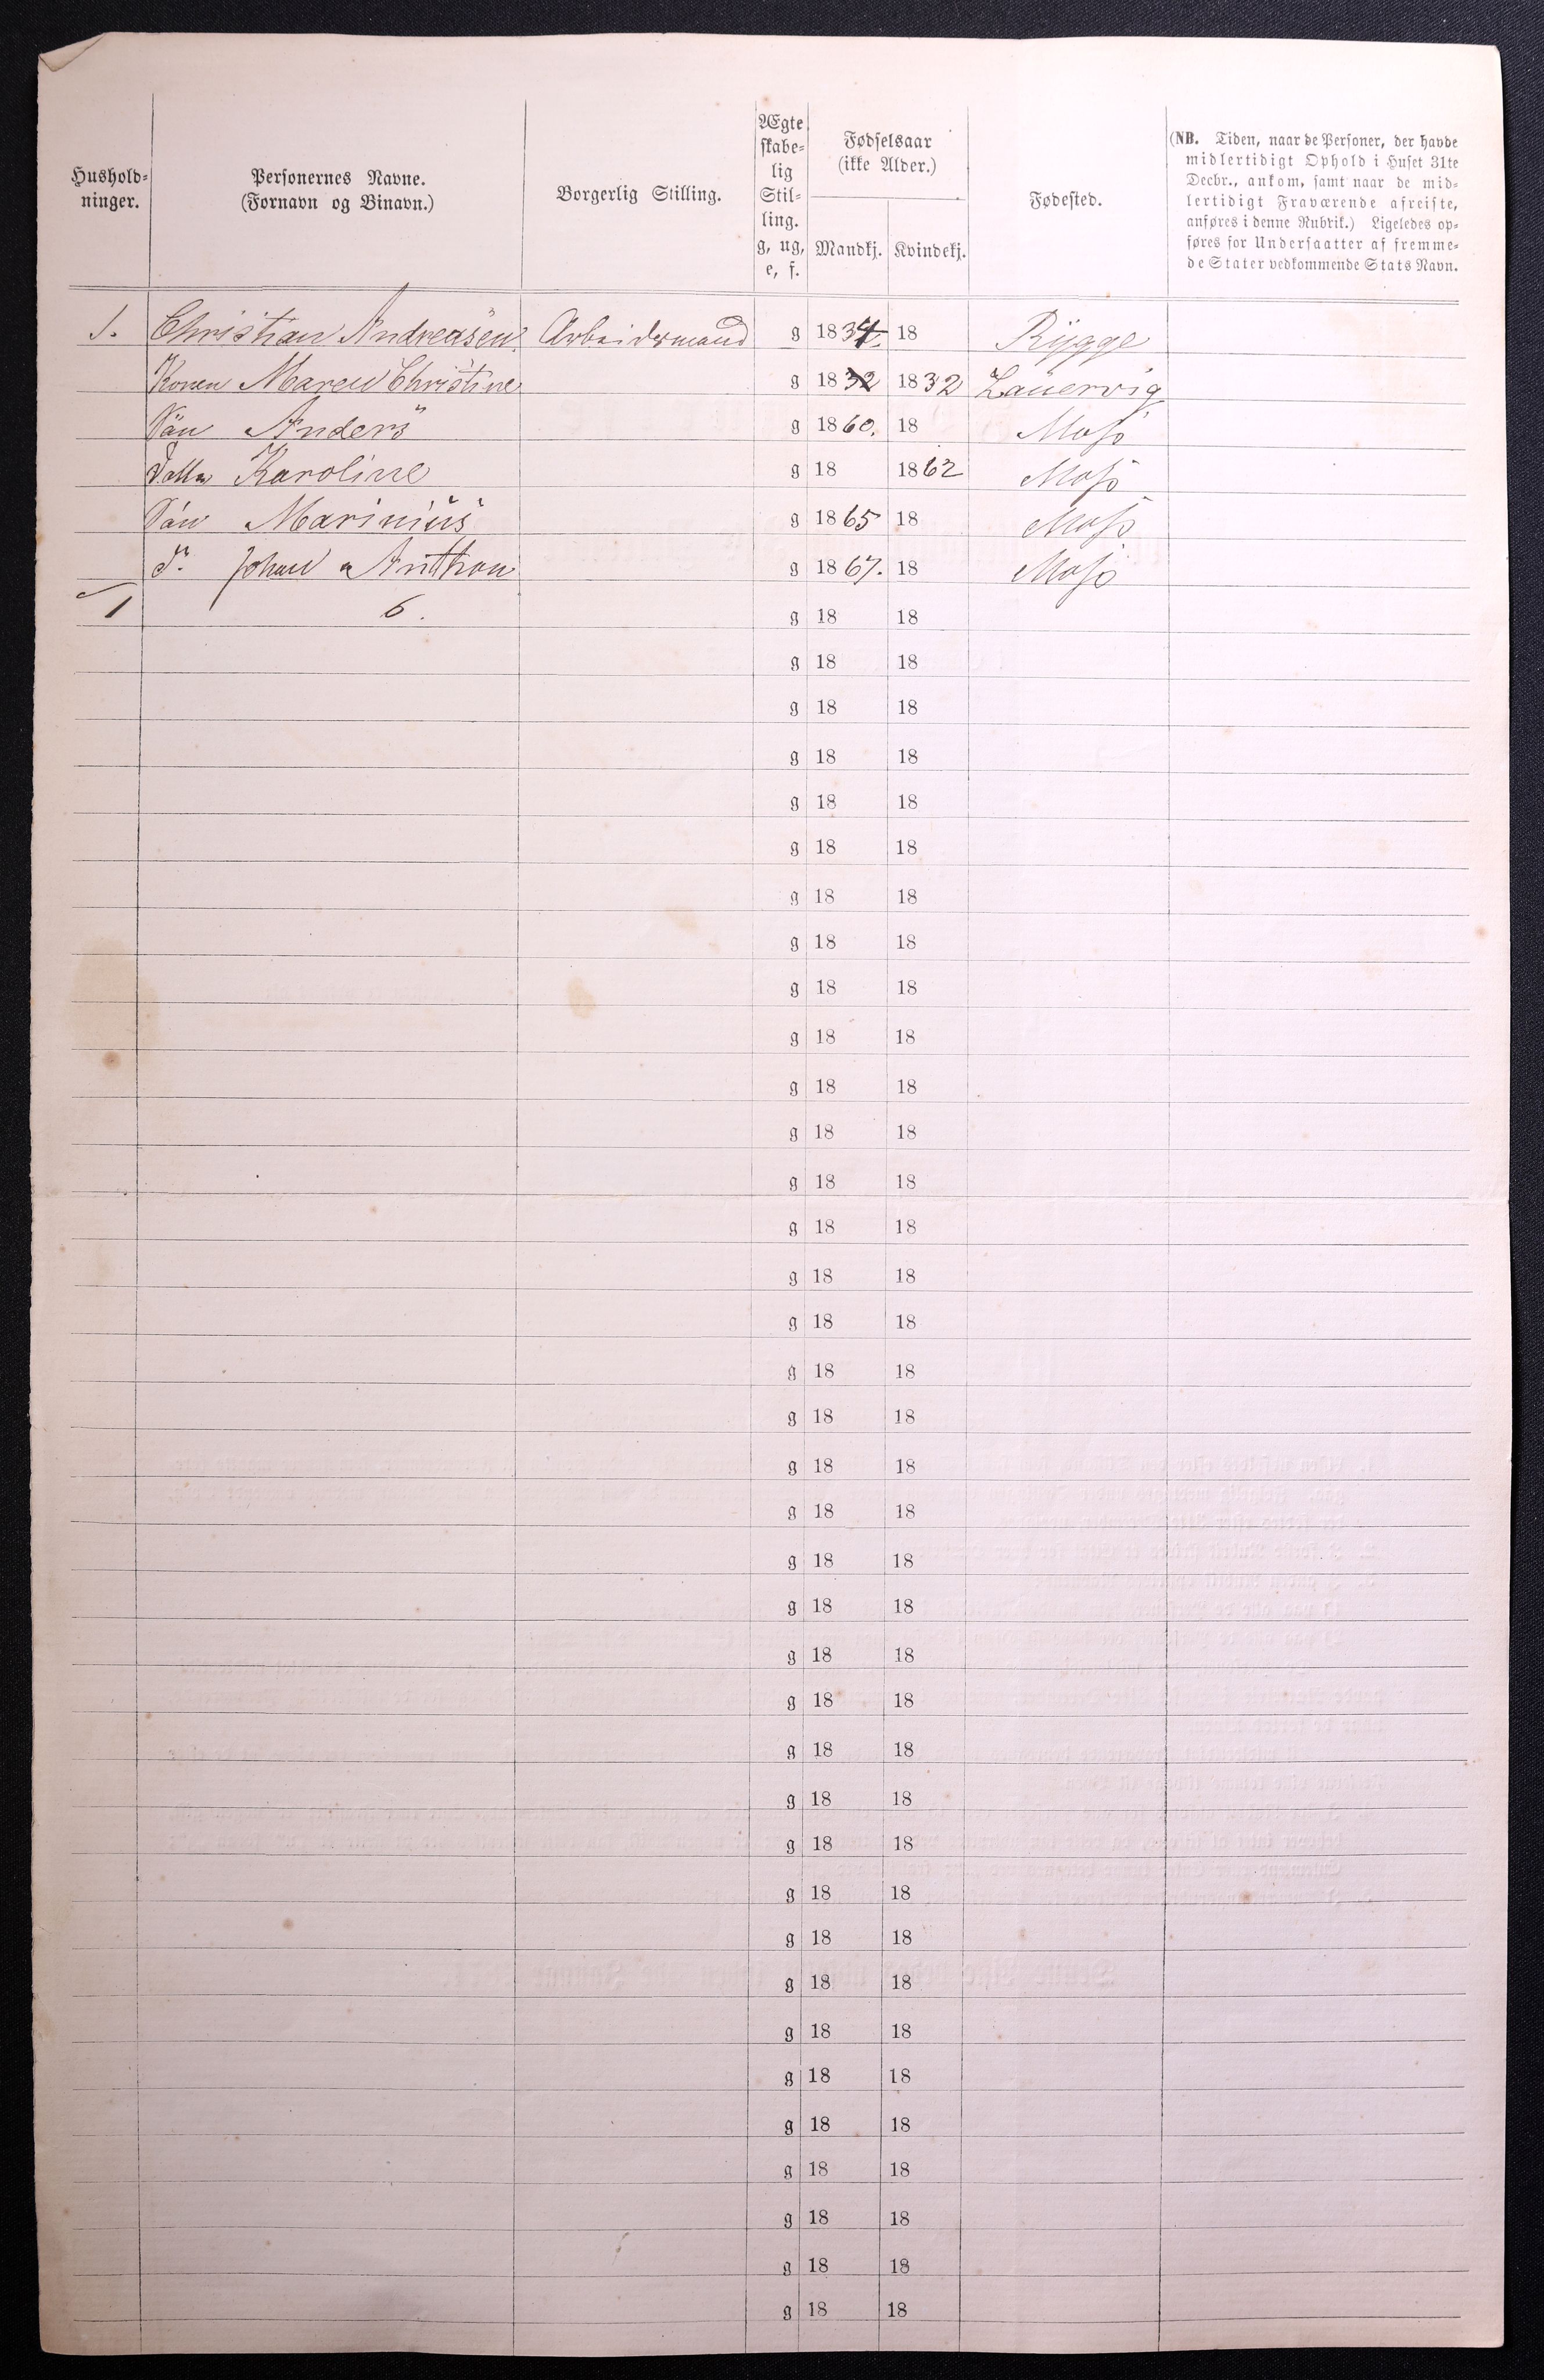 Hushold-
ninger.
Personernes Navne.
(Fornavn og Binavn.)
Borgerlig Stilling.
Ægte
skabe-
lig
Stil-
ling.
g, ug,
e, f.
Fødselsaar
(ikke Alder.)
Mandkj. Kvindekj.
Fødested.
(NB. Tiden, naar de Personer, der havde
midlertidigt Ophold i Huset 31te
Decbr., ankom, samt naar de mid-
lertidigt Fraværende afreiste,
anføres i denne Rubrik.) Ligeledes op-
føres for Undersaatter af fremme-
de Stater vedkommende Stats Navn.
1. Christian Andreasen Arbeidsmand g 1834. 18 Rygge
Konen Maren Christine g 1832 1832 Lauervig
Søn Anders g 1860. 18 Moss
Datter Karoline g 18 1862 Moss
Søn Marinius g 1865 18 Moss
S. Johan Anthon g 1867. 18 Moss
1 6. g 18 18
g 18 18
g 18 18
g 18 18
g 18 18
g 18 18
g 18 18
g 18 18
g 18 18
g 18 18
g 18 18
g 18 18
g 18 18
g 18 18
g 18 18
g 18 18
g 18 18
g 18 18
g 18 18
g 18 18
g 18 18
g 18 18
g 18 18
g 18 18
g 18 18
g 18 18
g 18 18
g 18 18
g 18 18
g 18 18
g 18 18
g 18 18
g 18 18
g 18 18
g 18 18
g 18 18
g 18 18